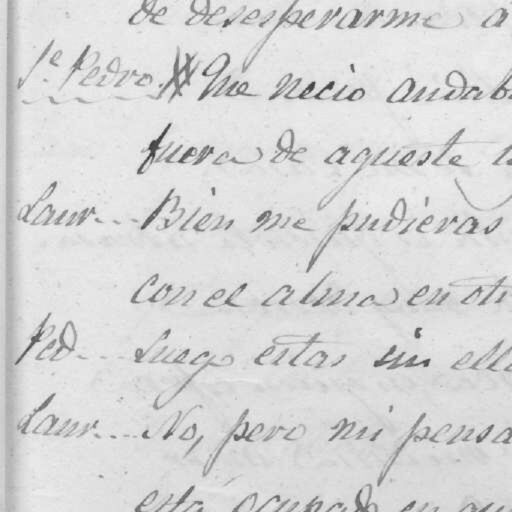 de desesperarme a
S.e Pedro Que necio andab
fuera de aqueste t
Laur... Bien me pudieras
con el alma en ot
Ped... Luego estas sin ella
Laur... No, pero mi pensa
está ocupado en qu